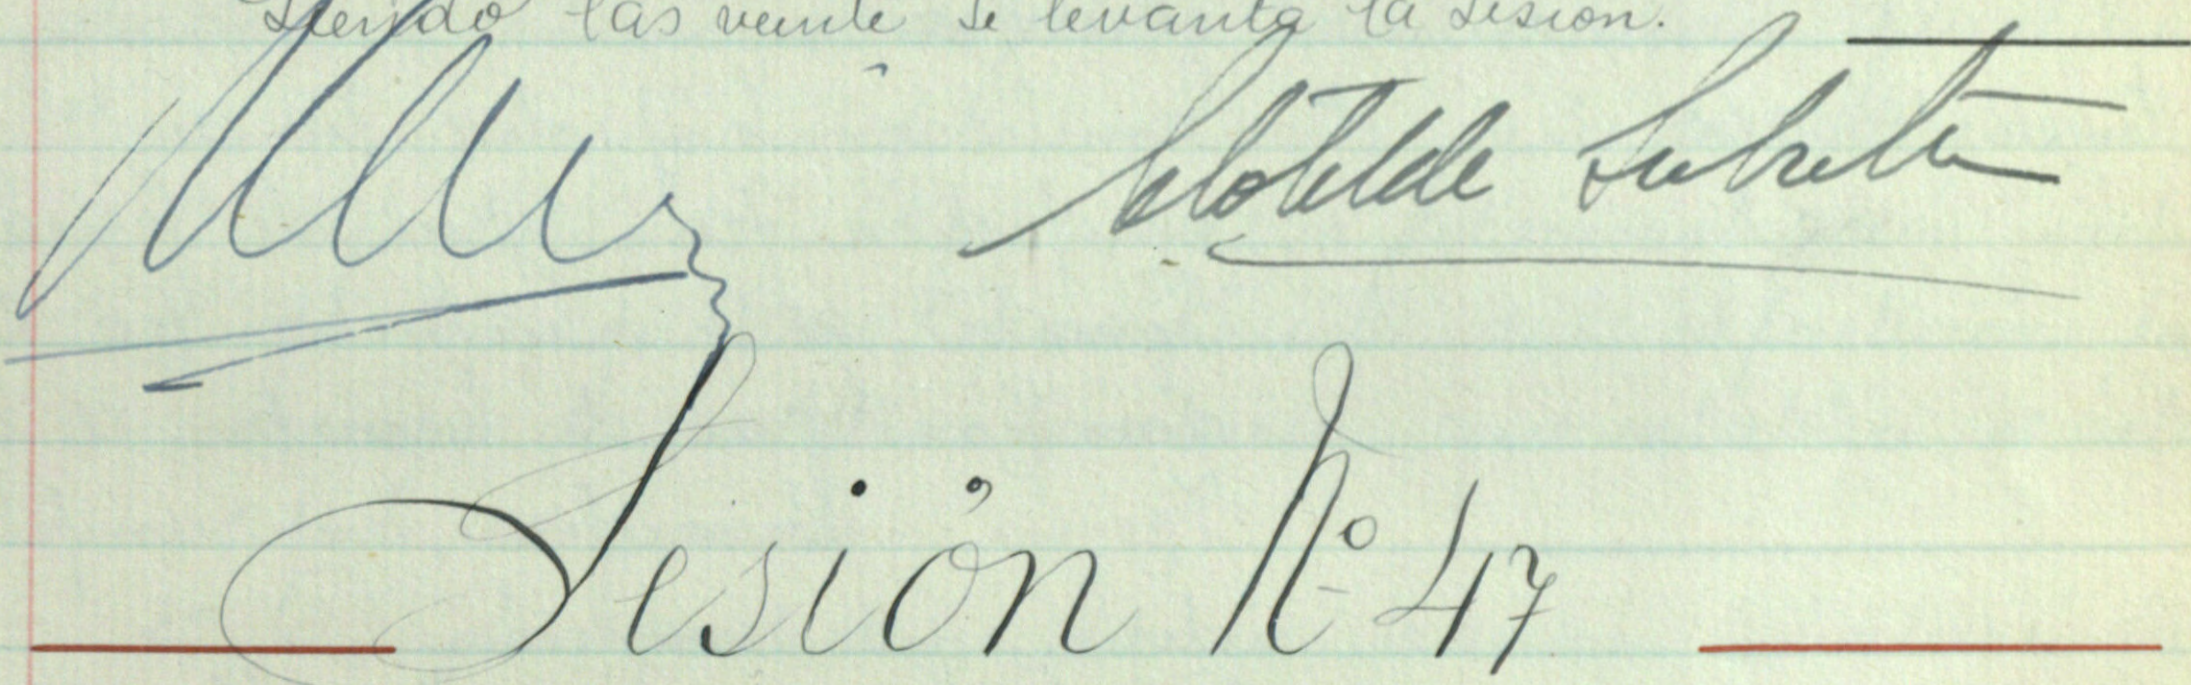 Siendo las veinte se levanta la sesión.
Clotilde
Sesión Nº 47